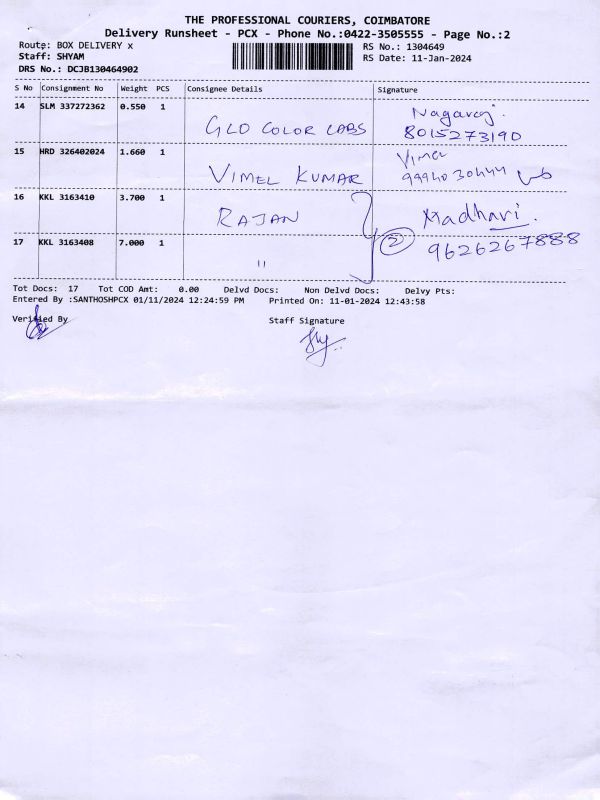 THE PROFESSIONAL COURIERS, COIMBATORE
Delivery Runsheet - PCX - Phone No.:0422-3505555 - Page No.:2
Route: BOX DELIVERY x
RS No.: 1304649
Staff: SHYAM
RS Date: 11-Jan-2024
DRS No.: DCJB130464902
S No Consignment No Weight PCS Consignee Details Signature
14 SLM 337272362 0.550 1
GLO COLOR LABS
Nagaraj.
8015273190
15 HRD 326402024 1.660 1
VIMEL KUMAR
Vimel
16 KKL 3163410 3.700 1
RAJAN
Madhavi.
17 KKL 3163408 7.000 1
"
2
9626267888
Tot Docs: 17 Tot COD Amt: 0.00 Delvd Docs: Non Delvd Docs: Delvy Pts:
Entered By :SANTHOSHPCX 01/11/2024 12:24:59 PM Printed On: 11-01-2024 12:43:58
Verified By
Staff Signature